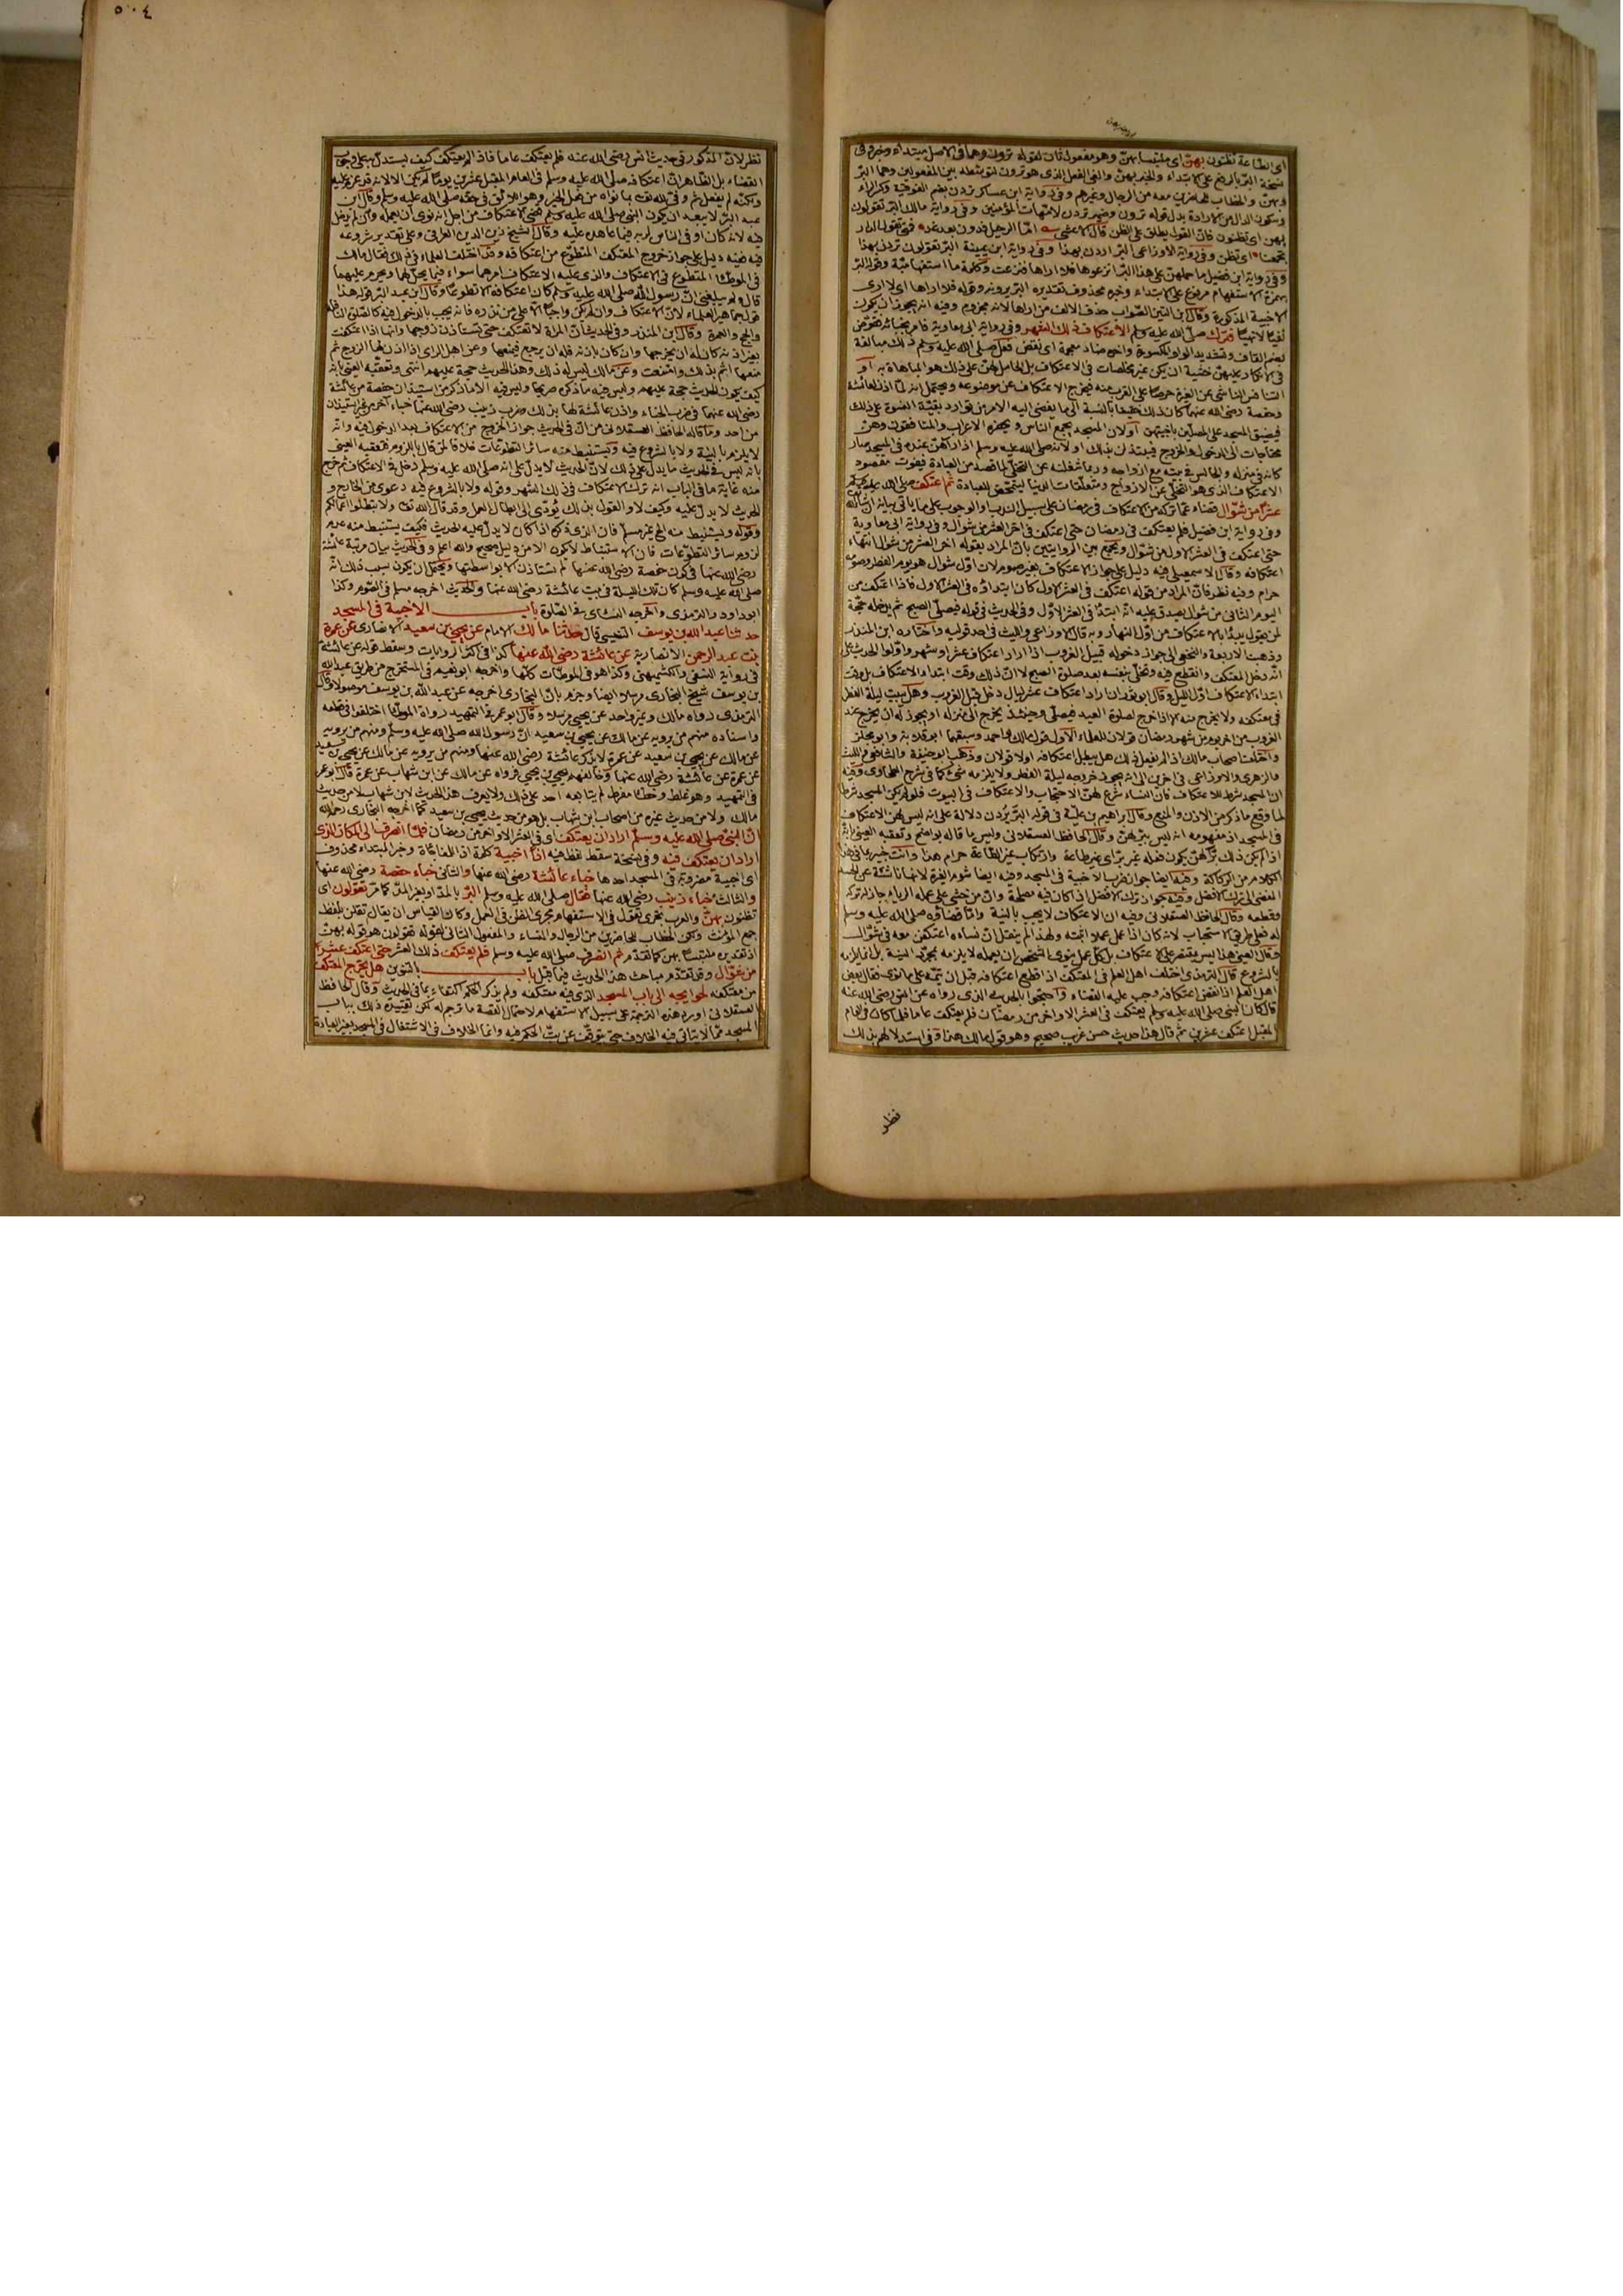 اى الطاعة تظنون بهن اى ملتبسا بهن وهو مفعول ثان لقوله ترون وهما فى الاصل مبتداء وخبر وفى
نسخة البر بالرفع على الابتداء والخبر بهن والغى الفعل الذى هو ترون لتوسطه بين المفعولين وهما البر
وبهن والخطاب للحاضرين معه من الرجال وغيرهم وفى رواية ابن عساكر تردن بضم الفوقية وكسر الراء
وسكون الدال من الارادة بدل قوله ترون وضمير تردن لامهات المؤمنين وفى رواية مالك البر تقولون
بهن اى تظنون فان القول يطلق على الظن قال الاعشى اما الرحيل فدون بعد غد فمتى تقول الدار
تجمعنا اى تظن وفى رواية الاوزاعى البر اردن بهذا وفى رواية ابن عيينة البر تقولون تردن بهذا
وفى رواية ابن فضيل ما حملهن على هذا البر انزعوها فلا اراها فنزعت وكلمة ما استفهامية وقوله البر
بهمزة الاستفهام مرفوع على الابتداء وخبره محذوف تقديره البر يردنه وقوله فلا اراها اى لا ارى
الاخبية المذكورة وقال ابن التين الصواب حذف الالف من اراها لانه مجزوم وفيه انه يجوز ان يكون
نفيا لا نهيا فترك صلى الله عليه وسلم الاعتكاف ذلك الشهر وفى رواية ابى معاوية فامر بخبائه فقوض
بضم القاف وتشديد الواو المكسورة واخره ضاد معجمة اى نقض فعل صلى الله عليه وسلم ذلك مبالغة
فى الانكار عليهن خشية ان يكن غير مخلصات فى الاعتكاف بل الحامل لهن على ذلك هو المباهاة به او
التنافس الناشئ عن الغيرة حرصا على القرب منه فيخرج الاعتكاف عن موضوعه ويحتمل انه لما اذن لعائشة
وحفصة رضى الله عنهما كان ذلك خفيفا بالنسبة الى ما يفضى اليه الامر من توارد بقية النسوة على ذلك
فيضيق المسجد على المصلين باخبيتهن او لان المسجد يجمع الناس ويحضره الاعراب والمنافقون وهن
محتاجات الى الدخول والخروج فيبتذلن بذلك او لانه صلى الله عليه وسلم اذا راهن عنده فى المسجد صار
كانه فى منزله والجالس فى بيته مع ازواجه وربما شغلنه عن التخلى لما قصد من العبادة فيفوت مقصود
الاعتكاف الذى هو التخلى عن الازواج ومتعلقات الدنيا ليتمحض للعبادة ثم اعتكف صلى الله عليه وسلم
عشرا من شوال قضاء عما تركه من الاعتكاف فى رمضان على سبيل الندب لا الوجوب على ما ياتى بيانه ان شاء الله
وفى رواية ابن فضيل فلم يعتكف فى رمضان حتى اعتكف فى اخر العشر من شوال وفى رواية ابى معاوية
حتى اعتكف فى العشر الاول من شوال ويجمع بين الروايتين بان المراد بقوله اخر العشر من شوال انتهاء
اعتكافه وقال الاسمعيلى فيه دليل على جواز الاعتكاف بغير صوم لان اول شوال هو يوم الفطر وصومه
حرام وفيه نظر فان المراد من قوله اعتكف فى العشر الاول كان ابتداؤه فى العشر الاول فاذا اعتكف من
اليوم الثانى من شوال يصدق عليه انه ابتدأ فى العشر الاول وفى الحديث فى قوله فيصلى الصبح ثم يدخله حجة
لمن يقول يبدأ بالاعتكاف من اول النهار وبه قال الاوزاعى والليث فى احد قوليه واختاره ابن المنذر
وذهبت الاربعة والنخعى الى جواز دخوله قبيل الغروب اذا اراد اعتكاف عشر او شهر واولوا الحديث على
انه دخل المعتكف وانقطع فيه وتخلى بنفسه بعد صلوة الصبح لا ان ذلك وقت ابتداء الاعتكاف بل وقت
ابتداء الاعتكاف اول الليل وقال ابو ثور ان اراد اعتكاف عشر ليال دخل قبل الغروب وهل يبيت ليلة الفطر
فى معتكفه ولا يخرج منه الا اذا خرج لصلوة العيد فيصلى وحينئذ يخرج الى منزله او يجوز له ان يخرج عند
الغروب من اخر يوم من شهر رمضان قولان للعلماء الاول قول مالك واحمد وسبقهما ابو قلابة وابو مجلز
واختلف اصحاب مالك اذا لم يفعل ذلك هل يبطل اعتكافه او لا قولان وذهب ابو حنيفة والشافعى والليث
والزهرى والاوزاعى فى اخرين الى انه يجوز خروجه ليلة الفطر ولا يلزمه شئ كما فى شرح الطحاوى وفيه
ان المسجد شرط للاعتكاف فان النساء شرع لهن الاحتجاب والاعتكاف فى البيوت فلو لم يكن المسجد شرطا
لما وقع ما ذكر من الاذن والمنع وقال ابراهيم بن علية فى قوله البر تردن دلالة على انه ليس لهن الاعتكاف
فى المسجد اذ مفهومه انه ليس ببر لهن وقال الحافظ العسقلانى وليس ما قاله بواضح وتعقبه العينى بانه
اذا لم يكن ذلك برا لهن يكون فعله غير بر اى غير طاعة وارتكاب غير الطاعة حرام هذا وانت خبير بما فى هذا
الكلام من الركاكة وفيه ايضا جواز ضرب الاخبية فى المسجد وفيه ايضا شوم الغيرة لانها ناشئة عن الحسد
المفضى الى ترك الافضل وفيه جواز ترك الافضل اذا كان فيه مصلحة وان من خشى على عمله الرياء جاز له تركه
وقطعه وقال الحافظ العسقلانى وفيه ان الاعتكاف لا يجب بالنية واما قضاؤه صلى الله عليه وسلم
له فعلى طريق الاستحباب لانه كان اذا عمل عملا اثبته ولهذا لم ينقل ان نساءه اعتكفن معه فى شوال
وقال العينى هذا ليس يقتصر على الاعتكاف بل كل عمل ينوى الشخص ان يعمله لا يلزمه بمجرد النية بل انما يلزمه
بالشروع قال الترمذى اختلف اهل العلم فى المعتكف اذا قطع اعتكافه قبل ان يتمه على ما نوى فقال بعض
اهل العلم اذا نقض اعتكافه وجب عليه القضاء واحتجوا بالحديث الذى رواه عن انس رضى الله عنه
قال كان النبى صلى الله عليه وسلم يعتكف فى العشر الاواخر من رمضان فلم يعتكف عاما فلما كان فى العام
المقبل اعتكف عشرين ثم قال هذا حديث حسن غريب صحيح وهو قول مالك هذا وفى استدلالهم بذلك
نظر
٥٠٤
نظر لان المذكور فى حديث انس رضى الله عنه فلم يعتكف عاما فاذا لم يعتكف كيف يستدل به على وجوب
القضاء بل الظاهر ان اعتكافه صلى الله عليه وسلم فى العام المقبل عشرين يوما لم يكن الا لانه قد عزم عليه
ولكنه لم يفعل ثم وفى لله تعالى بما نواه من فعل الخير وهو الاوثق فى حقه صلى الله عليه وسلم وقال ابن
عبد البر لا يبعد ان يكون النبى صلى الله عليه وسلم قضى الاعتكاف من اجل انه نوى ان يعمله وان لم يدخل
فيه لانه كان اوفى الناس لربه فيما عاهده عليه وقال الشيخ زين الدين العراقى وعلى تقدير شروعه
فيه ففيه دليل على جواز خروج المعتكف المتطوع من اعتكافه وقد اختلف العلماء فى ذلك فقال مالك
فى الموطا المتطوع فى الاعتكاف والذى عليه الاعتكاف امرهما سواء فيما يحل لهما ويحرم عليهما
قال ولم يبلغنى ان رسول الله صلى الله عليه وسلم كان اعتكافه الا تطوعا وقال ابن عبد البر قوله هذا
قول جماهير العلماء لان الاعتكاف وان لم يكن واجبا الا على من نذره فانه يجب بالدخول فيه كالصلوة النافلة
والحج والعمرة وقال ابن المنذر وفى الحديث ان المرأة لا تعتكف حتى تستاذن زوجها وانها اذا اعتكفت
بغير اذنه كان له ان يخرجها وان كان باذنه فله ان يرجع فيمنعها وعن اهل الراى اذا اذن لها الزوج ثم
منعها اثم بذلك وامتنعت وعن مالك ليس له ذلك وهذا الحديث حجة عليهم انتهى وتعقبه العينى بانه
كيف يكون الحديث حجة عليهم وليس فيه ما ذكره صريحا وليس فيه الا ما ذكر من استيذان حفصة من عائشة
رضى الله عنهما فى ضرب الخباء واذن عائشة لها بذلك ضرب زينب رضى الله عنها خباء آخر من غير استيذان
من احد وما قاله الحافظ العسقلانى من ان فى الحديث جواز الخروج من الاعتكاف بعد الدخول فيه وانه
لا يلزم بالنية ولا بالشروع فيه ويستنبط منه سائر التطوعات خلافا لمن قال باللزوم فتعقبه العينى
بانه ليس فى الحديث ما يدل على ذلك لان الحديث لا يدل على انه صلى الله عليه وسلم دخل فى الاعتكاف ثم خرج
منه غاية ما فى الباب انه ترك الاعتكاف فى ذلك الشهر وقوله ولا بالشروع فيه دعوى من الخارج و
الحديث لا يدل عليه وكيف لا والقول بذلك يؤدى الى ابطال العمل وقد قال الله تعالى ولا تبطلوا اعمالكم
وقوله ويستنبط منه الخ غير مسلم فان الذى ذكره اذا كان لا يدل عليه الحديث فكيف يستنبط منه عدم
لزوم سائر التطوعات فان الاستنباط لا يكون الا من دليل صحيح والله اعلم وفى الحديث بيان مرتبة عائشة
رضى الله عنها فى كون حفصة رضى الله عنها لم تستاذن الا بواسطتها ويحتمل ان يكون سبب ذلك انه
صلى الله عليه وسلم كان تلك الليلة فى بيت عائشة رضى الله عنها والحديث اخرجه مسلم فى الصوم وكذا
ابو داود والترمذى واخرجه النسائى فى الصلوة باب الاخبية فى المسجد
حدثنا عبد الله بن يوسف التنيسى قال حدثنا مالك الامام عن يحيى بن سعيد الانصارى عن عمرة
بنت عبد الرحمن الانصارية عن عائشة رضى الله عنها كذا فى اكثر الروايات وسقط قوله عن عائشة
فى رواية النسفى والكشميهنى وكذا هو فى الموطآت كلها واخرجه ابو نعيم فى المستخرج من طريق عبد الله
بن يوسف شيخ البخارى مرسلا ايضا وجزم بان البخارى اخرجه عن عبد الله بن يوسف موصولا وقال
الترمذى رواه مالك وغير واحد عن يحيى مرسلا وقال ابو عمر فى التمهيد رواة الموطا اختلفوا فى قطعه
واسناده منهم من يرويه عن مالك عن يحيى بن سعيد ان رسول الله صلى الله عليه وسلم ومنهم من يرويه
عن مالك عن يحيى بن سعيد عن عمرة لا يذكر عائشة رضى الله عنها ومنهم من يرويه عن مالك عن يحيى بن سعيد
عن عمرة عن عائشة رضى الله عنها وخالفهم يحيى بن يحيى فرواه عن مالك عن ابن شهاب عن عمرة قال ابو عمر
فى التمهيد وهو غلط وخطأ مفرط لم يتابعه احد على ذلك ولا يعرف هذا الحديث لابن شهاب لا من حديث
مالك ولا من حديث غيره من اصحاب ابن شهاب بل هو من حديث يحيى بن سعيد كما اخرجه البخارى رحمه الله
ان النبى صلى الله عليه وسلم اراد ان يعتكف اى فى العشر الاواخر من رمضان فلما انصرف الى المكان الذى
اراد ان يعتكف فيه وفى نسخة سقط لفظ فيه اذا اخبية كلمة اذا للمفاجاة وخبر المبتداء محذوف
اى اخبية مضروبة فى المسجد احدها خباء عائشة رضى الله عنها والثانى خباء حفصة رضى الله عنها
والثالث خباء زينب رضى الله عنها فقال صلى الله عليه وسلم البر بالمد او بغير المد كما مر تقولون اى
تظنون بهن والعرب تجرى تقول فى الاستفهام مجرى الظن فى العمل وكان القياس ان يقال تقلن بلفظ
جمع المؤنث ولكن الخطاب للحاضرين من الرجال والنساء والمفعول الثانى لقوله تقولون هو قوله بهن
اذ تقديره ملتبسا بهن كما تقدم ثم انصرف صلى الله عليه وسلم فلم يعتكف ذلك العشر حتى اعتكف عشرا
من شوال وقد تقدم مباحث هذا الحديث فيما قبل باب بالتنوين هل يخرج المعتكف
من معتكفه لحوايجه الى باب المسجد الذى فيه معتكفه ولم يذكر الحكم اكتفاء بما فى الحديث وقال الحافظ
العسقلانى اورد هذه الترجمة على سبيل الاستفهام لاحتمال القصة ما ترجم له لكن تقييده ذلك بباب
المسجد مما لا يتاتى فيه الخلاف حتى يتوقف عن بت الحكم فيه وانما الخلاف فى الاشتغال فى المسجد بغير العبادة